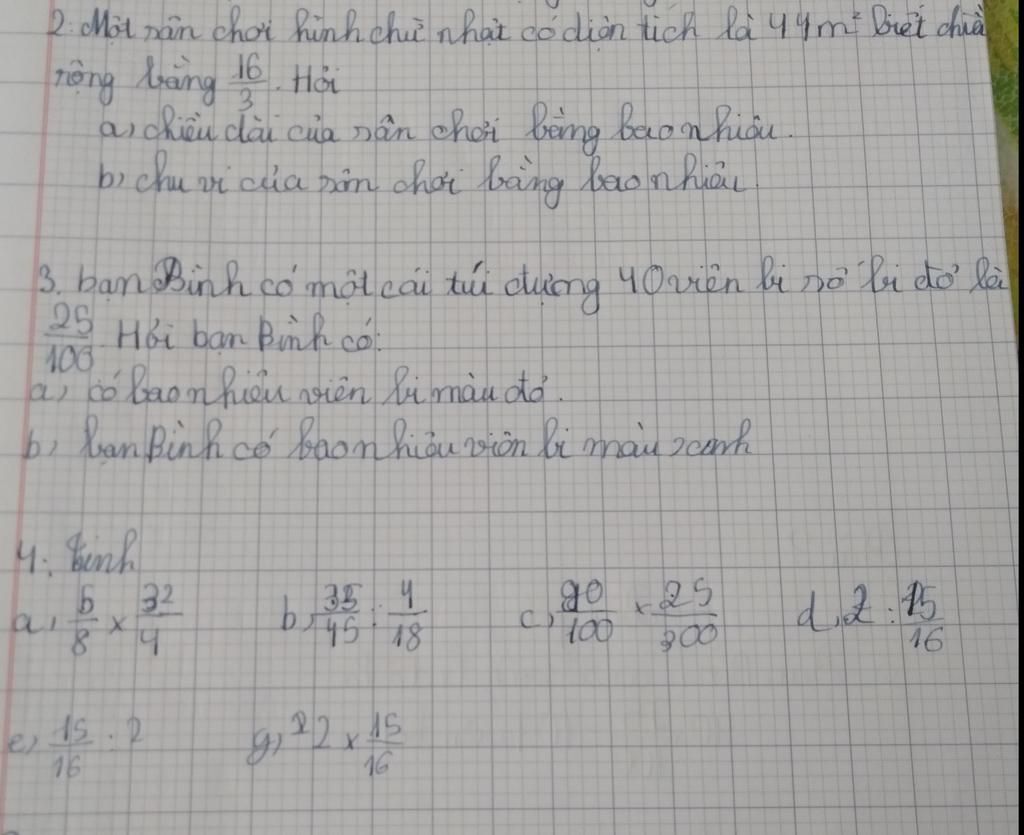 2. Một sân chơi hình chữ nhật có diện tích là 44m² Biết chiề
rộng bằng 16/3. Hỏi
a, chiều dài của sân chơi bằng bao nhiêu.
b, chu vi của sân chơi bằng bao nhiêu
3. bạn Bình có một cái túi đựng 40 viên bi số bi đỏ là
25/100 Hỏi bạn Bình có:
a, có bao nhiêu viên bi màu đỏ.
b, bạn Bình có bao nhiêu viên bi màu xanh
4. Tính
a, 5/8 × 32/4 b, 35/45 : 4/18 c, 90/100 × 25/300 d, 2 : 15/16
e, 15/16 : 2 g, 22 × 15/16